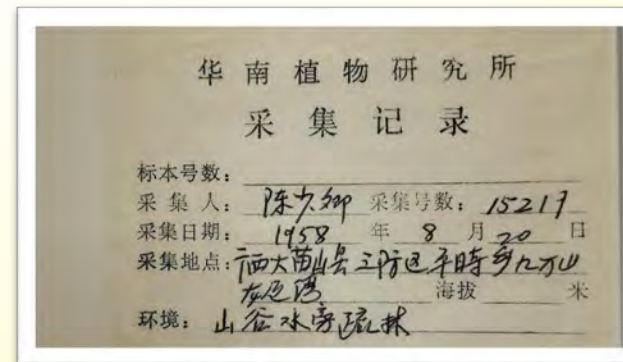 华南植物研究所
采集记录
标本号数：
采集人：陈少卿 采集号数：15217
采集日期：1958年8月20日
采集地点：广西大苗山县三防区平時乡九万山
海拔 米
环境：山谷水旁疏林